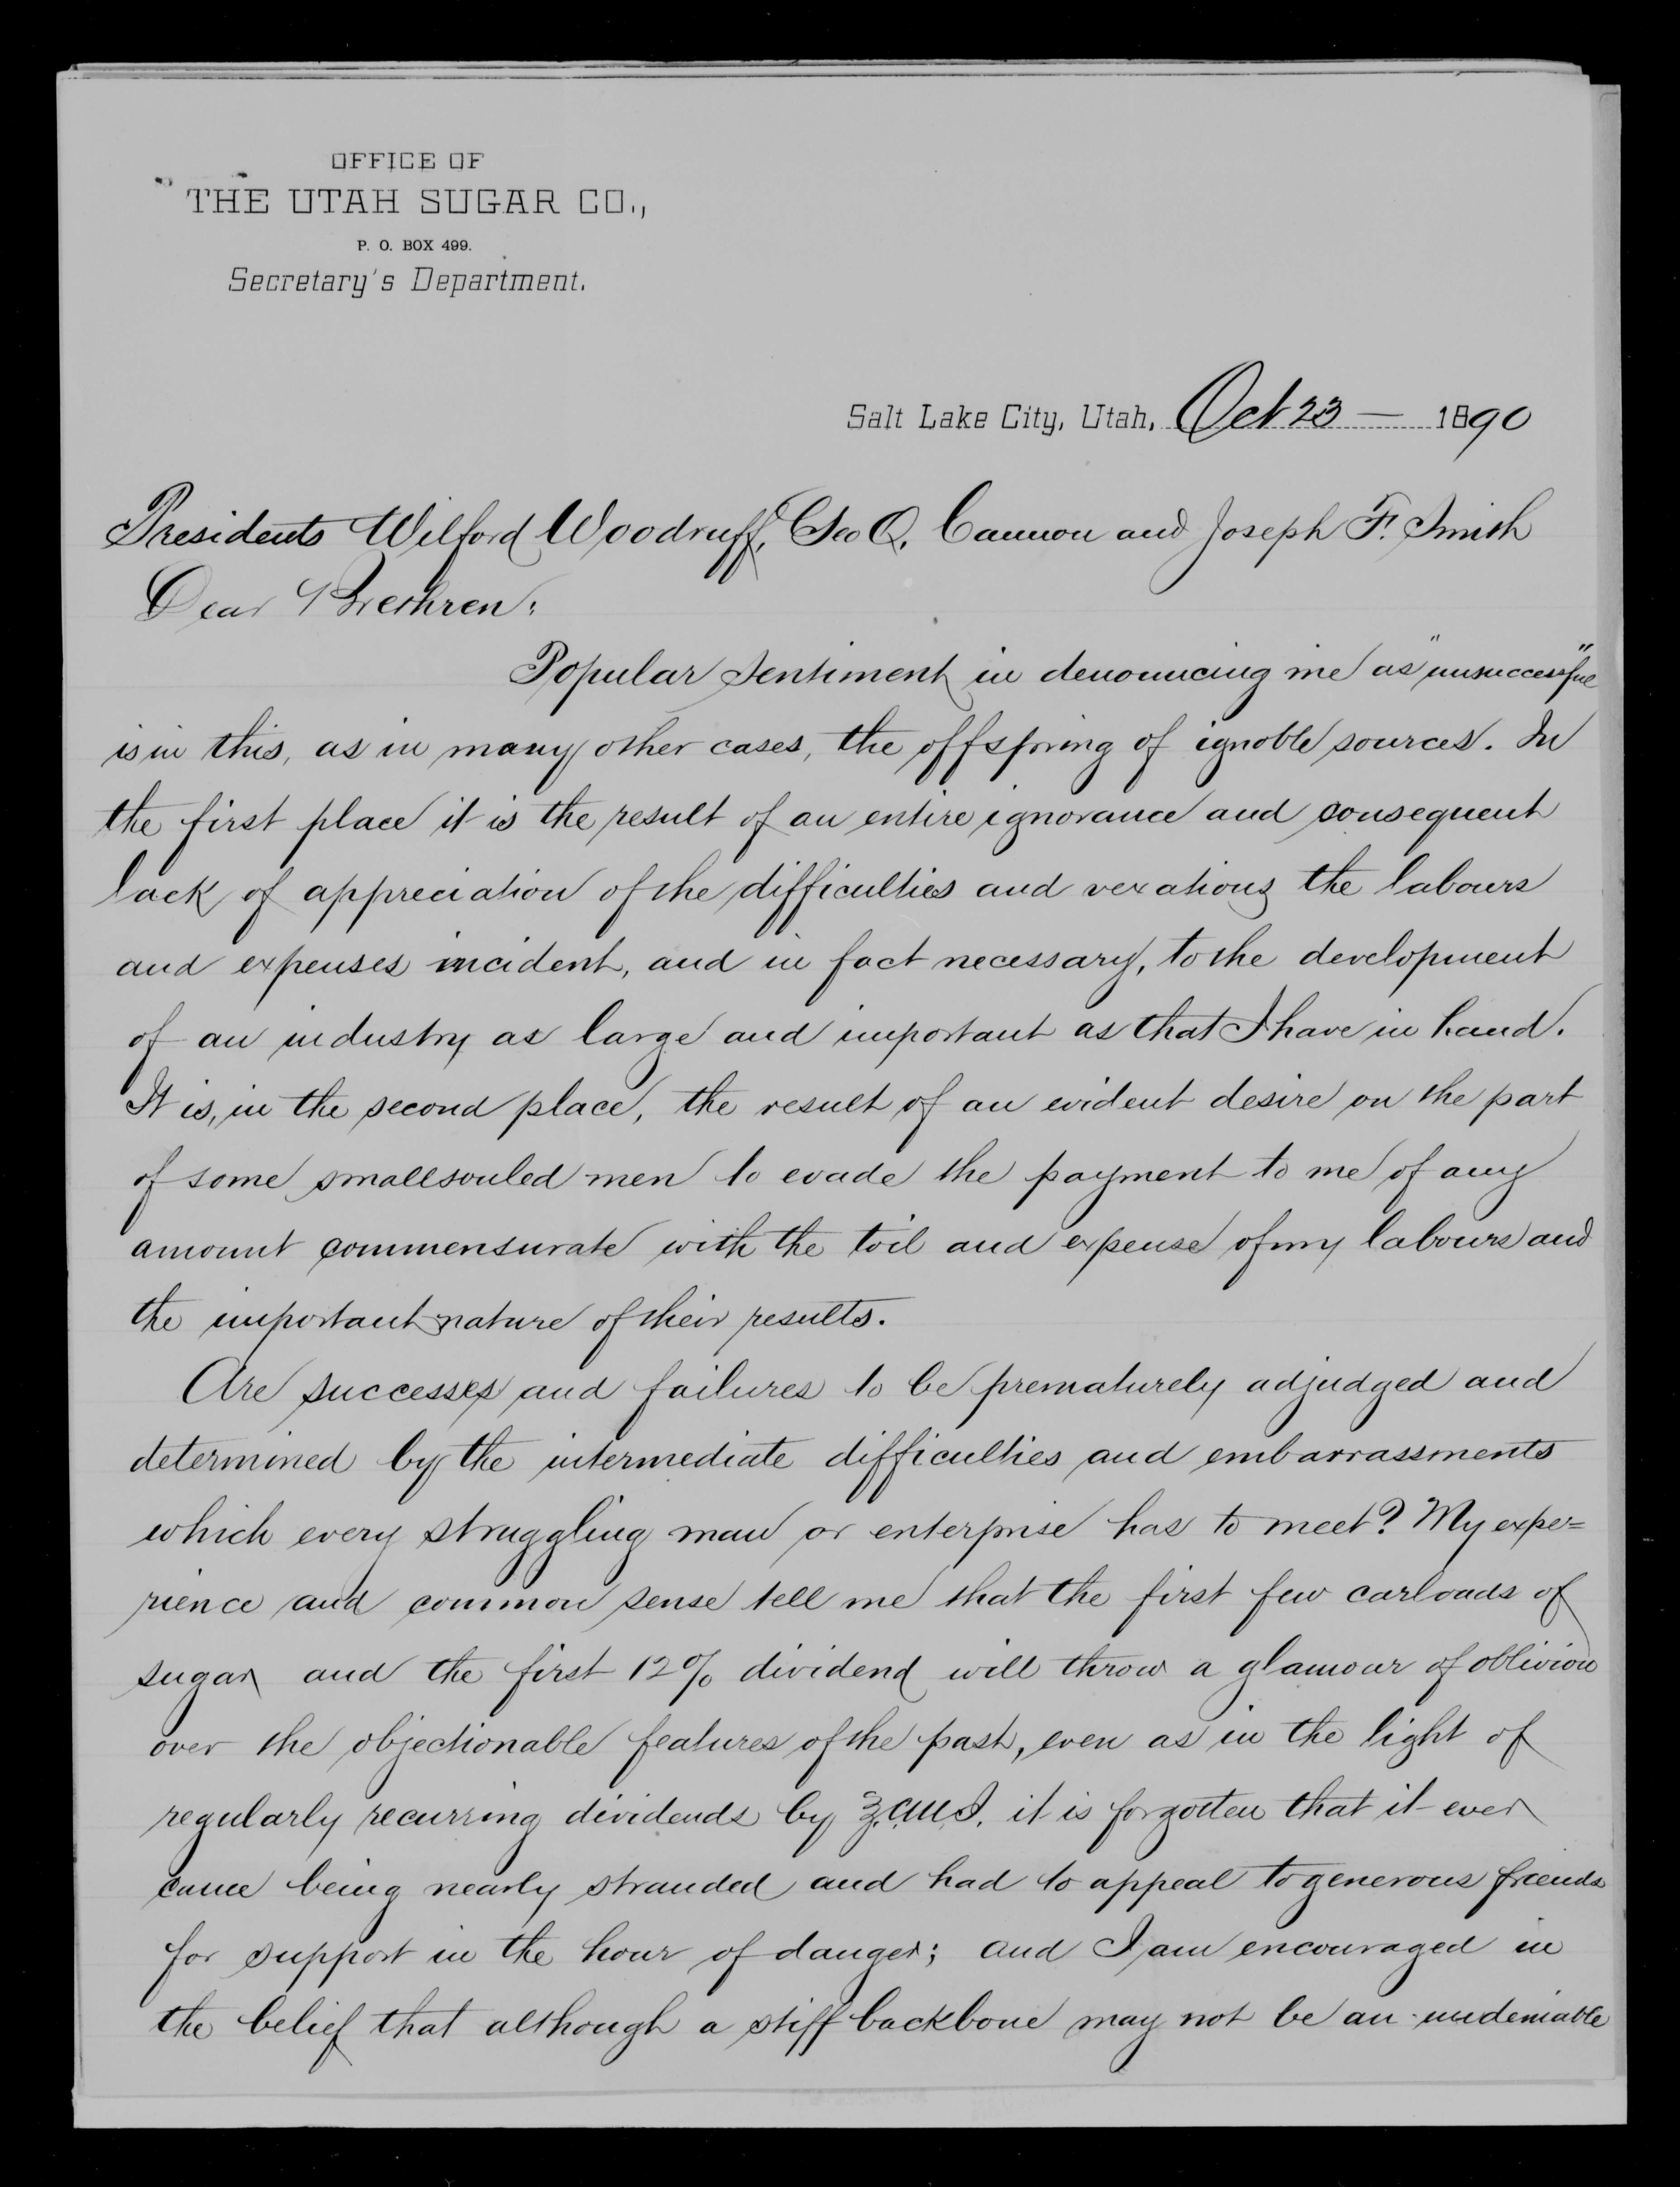 OFFICE OF
THE UTAH SUGAR CO.,
P. O. BOX 499.
Secretary's Department.
Salt Lake City, Utah, Oct 23 — 1890
Presidents Wilford Woodruff, Geo Q. Cannon and Joseph F. Smith
Dear Brethren:
Popular Sentiment in denouncing me as "unsuccessful"
is in this, as in many other cases, the offspring of ignoble sources. In
the first place it is the result of an entire ignorance and consequent
lack of appreciation of the difficulties and vexations the labours
and expenses incident, and in fact necessary, to the development
of an industry as large and important as that I have in hand.
It is, in the second place, the result of an evident desire on the part
of some smallsouled men to evade the payment to me of any
amount commensurate with the toil and expense of my labours and
the important nature of their results.
Are successes and failures to be prematurely adjudged and
determined by the intermediate difficulties and embarrassments
which every struggling man or enterprise has to meet? My expe=
rience and common sense tell me that the first few carloads of
sugar and the first 12% dividend will throw a glamour of oblivion
over the objectionable features of the past, even as in the light of
regularly recurring dividends by Z.C.M.I. it is forgotten that it ever
came being nearly stranded and had to appeal to generous friends
for support in the hour of danger; and I am encouraged in
the belief that although a stiff backbone may not be an undeniable